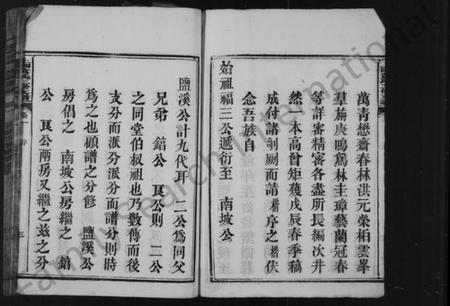 萬青懋齋春林洪元榮相雲峯
羣旃庚鳴鳶林圭璋藝蘭冠春
等詳審精密各盡所長編次井
然一本高曾矩矱戊辰春季稿
成付諸剞劂而請 序之 伏
念吾族自
始祖福三公遞衍至 南坡公
鹽溪公計九代耳 二公為同父
兄弟 錯公 艮公則 二公
之同堂伯叔祖也乃數傳而後
支分而派分派分而譜分則時
為之也顧譜之分修 鹽溪公
房倡之 南坡公房繼之 錯
公 艮公兩房又繼之茲之分